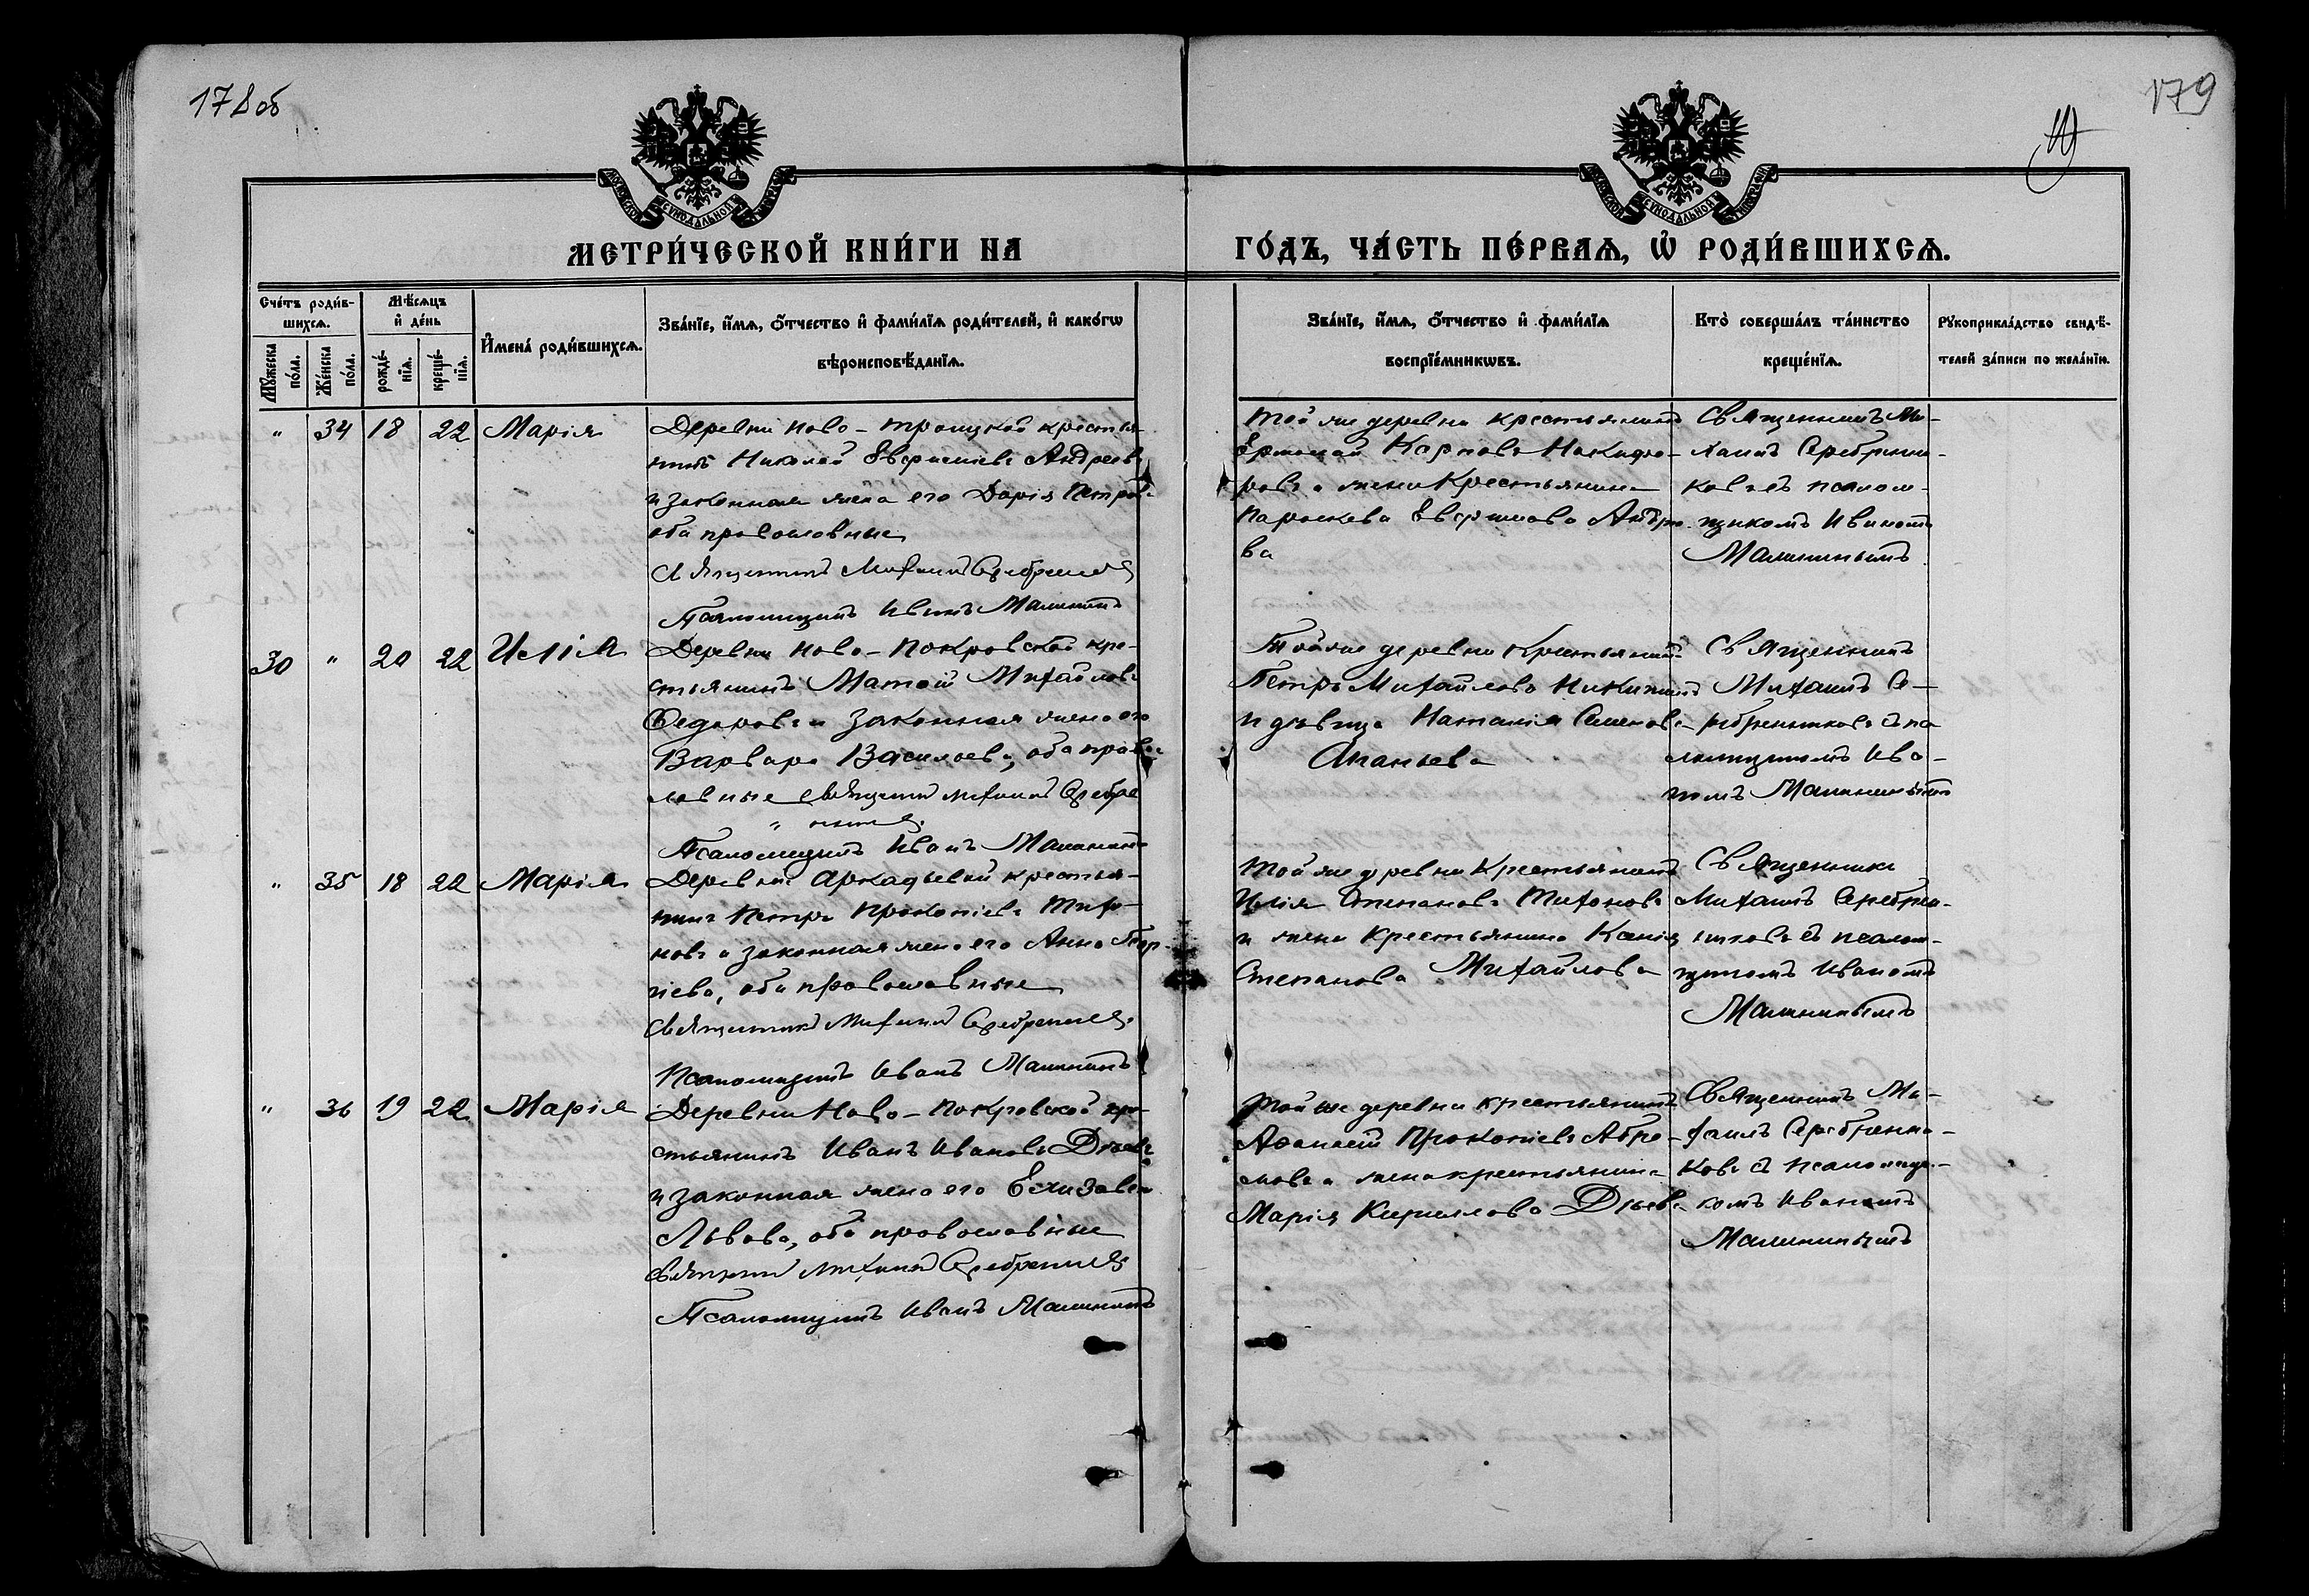 178об
179
МЕТРИ́ЧЕСКОЙ КНИ́ГИ НА
ГО́ДЪ, ЧА́СТЬ ПЕ́РВАѦ, Ѡ҆ РОДИ́ВШИХСѦ.
Сче́тъ роди́в-
шихсѧ.
Мѣ́сѧцъ
и҆ де́нь
Мꙋ́жеска по́ла.
Же́нска по́ла.
рожде́-нїѧ.
креще́-нїѧ.
И҆мена̀ роди́вшихсѧ.
Зва́нїе, и҆́мѧ, ѻ҆́тчество и҆ фамилїѧ роди́телей, и҆ како́гѡ
вѣроисповѣ́данїѧ.
Зва́нїе, и҆́мѧ, ѻ҆́тчество и҆ фами́лїѧ
воспрїе́мникѡвъ.
Кто̀ соверша́лъ та́инство
креще́нїѧ.
Рꙋкоприкла́дство свидѣ́-
телей за́писи по жела́нїю.
" 34 18 22 Марія
Деревни Ново-троицкой крестья-
нинъ Николай Андреевъ
и законная жена его Дарія Петров
оба православные
Священникъ Михаилъ Серебренников
Псаломщикъ Иванъ Малининъ
Той же деревни крестьянинъ
Ермолай Карповъ Никифо-
ровъ и жена крестьянина
Параскева Андрее
ва
Священникъ Ми-
хаилъ Серебренни-
ковъ съ псалом-
щикомъ Иваномъ
Малининымъ
30 " 20 22 Илія
Деревни Ново-Покровской кре-
стьянинъ Матѳій Михайловъ
Ѳедоровъ и законная жена его
Варвара Васильева, оба право
лавные священникъ Михаилъ Серебре
" никовъ
Псаломщикъ Иванъ Малининъ
Той же деревни Крестьянинъ
Петръ Михайловъ Никитинъ
и дѣвица Наталія Семенова
Ананьева
Священникъ
Михаилъ Се-
ребренниковъ съ пса
ломщикомъ Ива-
номъ Малининымъ
" 35 18 22 Марія
Деревни Аркадьевой крестья-
нинъ Петръ Прокопіевъ Тихо-
новъ и законная жена его Анна Геор-
гіева, оба православные
Священникъ Михаилъ Серебренников
Псаломщикъ Иванъ Малининъ
Той же деревни Крестьянинъ
Илія Степановъ Тихоновъ
и жена крестьянина
Степанова Михайлова
Священникъ
Михаилъ Серебрен-
никовъ съ псалом-
щикомъ Иваномъ
Малининымъ
" 36 19 22 Марія
Деревни Ново-Покровской кре-
стьянинъ Иванъ Ивановъ
и законная жена его Елизавета
Львова, оба православные
Священникъ Михаилъ Серебренников
Псаломщикъ Иванъ Малининъ
Той же деревни крестьянинъ
Аѳанасій Прокопіевъ Абра-
мовъ и жена крестьянина
Марія Кириллова
Священникъ Ми-
хаилъ Серебренни-
ковъ съ псаломщи-
комъ Иваномъ
Малининымъ